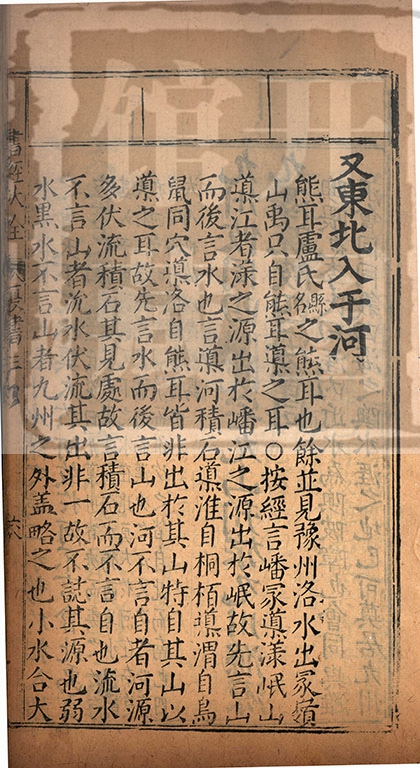 又東北入于河
熊耳盧氏縣名之熊耳也餘並見豫州洛水出冡嶺
山禹只自熊耳導之耳○按經言嶓冢導漾岷山
導江者漾之源出於嶓江之源出於岷故先言山
而後言水也言導河積石導淮自桐栢導渭自鳥
鼠同穴導洛自熊耳皆非出於其山特自其山以
導之耳故先言水而後言山也河不言自者河源
多伏流積石其見處故言積石而不言自也沇水
不言山者沇水伏流其出非一故不誌其源也弱
水黒水不言山者九州之外盖略之也小水合大
書經大全
夏書